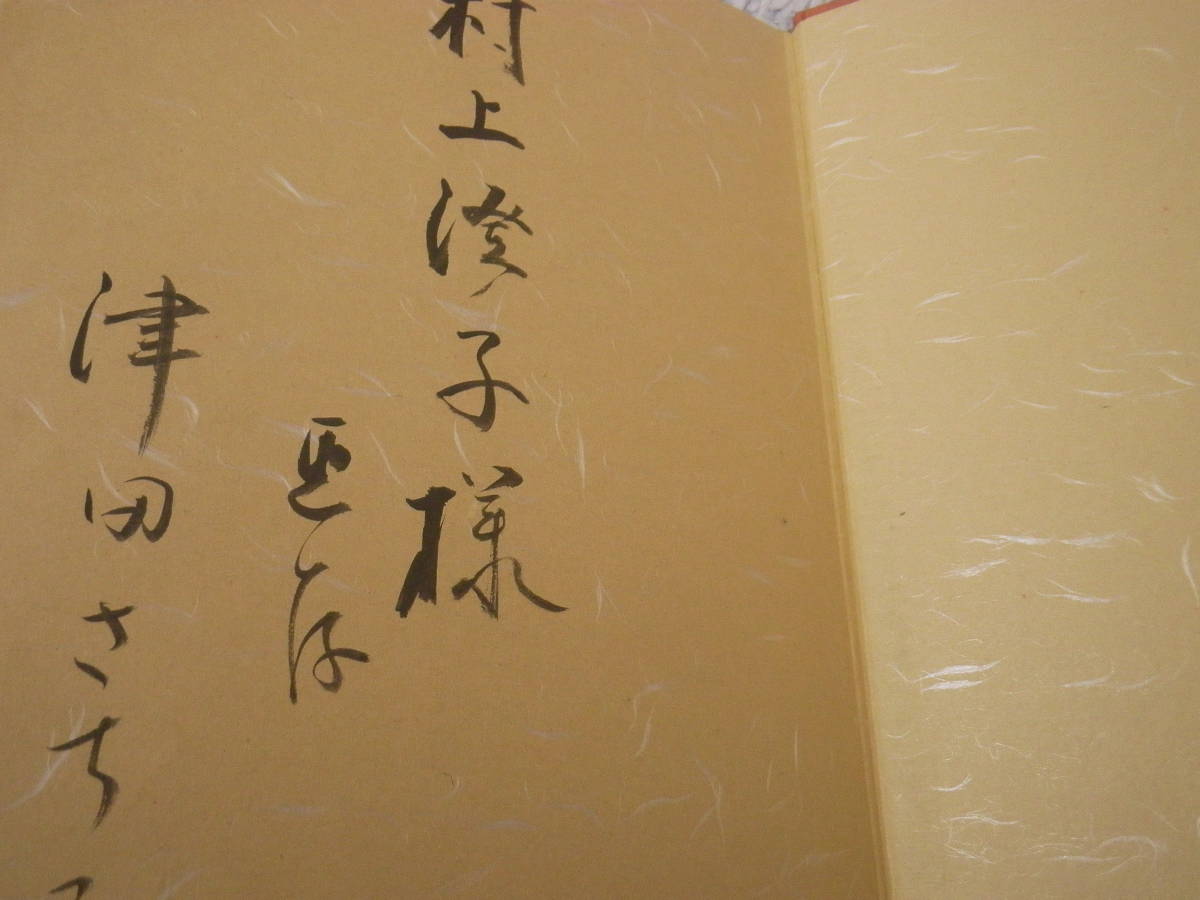 村上澄子様
恵存
津田さち